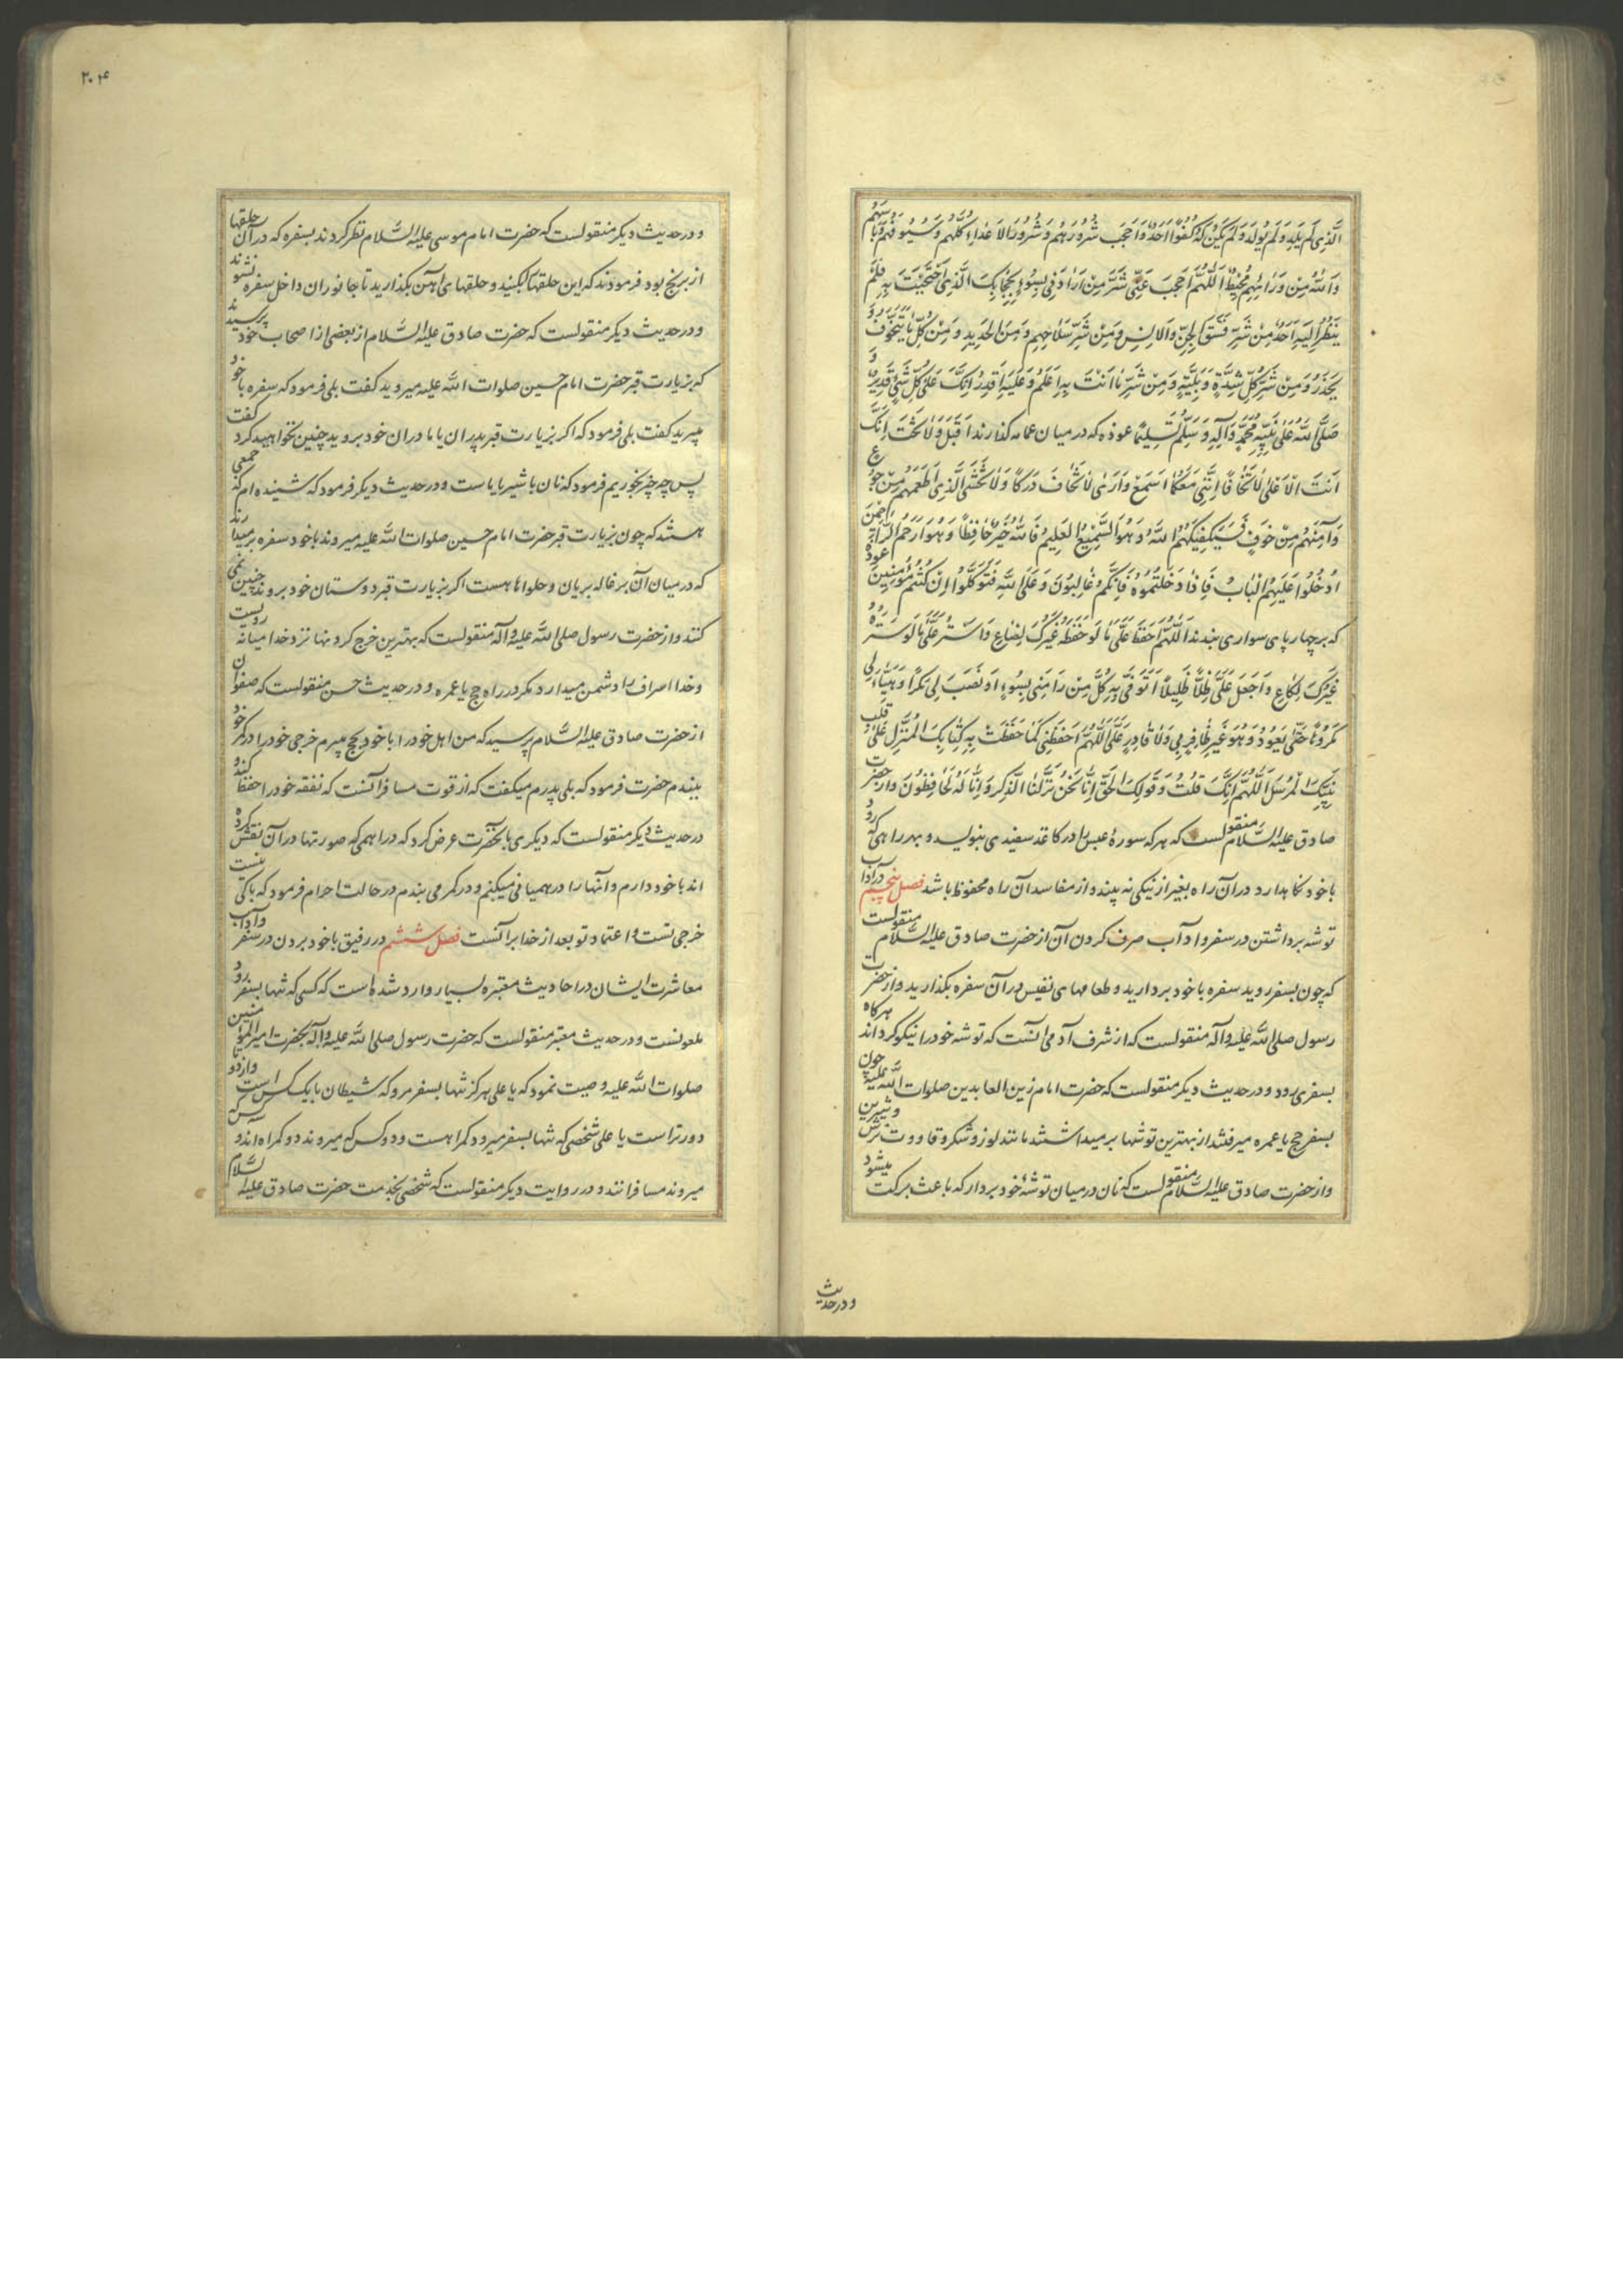 الَّذِی لَم یَلِد وَلَم یُولَد وَلَم یَکُن لَهُ کُفُوًا اَحَدٌ وَاَحجَب شُرُورَهُم وَشُرُورَ الاَعدَاءِ کُلَّهُم وَسُیُوفَهُم وَبَاسَهُم
وَاللهُ مِن وَرَائِهِم مُحِیطٌ اَللَّهُمَّ احجَب عَنِّی شَرَّ مَن اَرَادَنِی بِسُوءٍ بِحِجَابِکَ الَّذِی احتَجَبتَ بِهِ فَلَم
یَنظُر اِلَیهِ اَحَدٌ مِن شَرِّ فَسَقَةِ الجِنِّ وَالاِنسِ وَمِن شَرِّ سَلَاحِهِم وَمِنَ الحَدِیدِ وَمِن کُلِّ مَا یُتَخَوَّفُ وَ
یُحذَرُ وَمِن شَرِّ کُلِّ شِدَّةٍ وَبَلِیَّةٍ وَمِن شَرِّ مَا اَنتَ بِهِ اَعلَمُ وَعَلَیهِ اَقدَرُ اِنَّکَ عَلی کُلِّ شَیءٍ قَدِیرٌ وَ
صَلَّی اللهُ عَلی نَبِیِّهِ مُحَمَّدٍ وَآلِهِ وَسَلَّمَ تَسلِیمًا عوذه که در میان عمامه کذارند اَقبِل وَلَا تَخَف اِنَّکَ
اَنتَ الاَعلی لَا تَخَافَا اِنَّنِی مَعَکُمَا اَسمَعُ وَاَرَی لَا تَخَافُ دَرَکًا وَلَا تَخشَی الَّذِی اَطعَمَهُم مِن جُوعٍ
وَآمَنَهُم مِن خَوفٍ فَسَیَکفِیکَهُمُ اللهُ وَهُوَ السَّمِیعُ العَلِیمُ فَاللهُ خَیرٌ حَافِظًا وَهُوَ اَرحَمُ الرَّاحِمِینَ
اُدخُلُوا عَلَیهِمُ البَابَ فَاِذَا دَخَلتُمُوهُ فَاِنَّکُم غَالِبُونَ وَعَلَی اللهِ فَتَوَکَّلُوا اِن کُنتُم مُؤمِنِینَ عوذه
که بر چهارپای سواری بندند اَللَّهُمَّ احفَظ عَلَیَّ مَا لَو حَفِظَهُ غَیرُکَ لَضَاعَ وَاستُر عَلَیَّ مَا لَو سَتَرَهُ
غَیرُکَ لَشَاعَ وَاجعَل عَلَیَّ ظِلًّا ظَلِیلًا اَتَوَقَّی بِهِ کُلَّ مَن رَامَنِی بِسُوءٍ اَو نَصَبَ لِی مَکرًا وَهَیَّأَ لِی
مَکرُوهًا حَتَّی یَعُودَ وَهُوَ غَیرُ ظَافِرٍ بِی وَلَا قَادِرٍ عَلَیَّ اَللَّهُمَّ احفَظنِی کَمَا حَفِظتَ بِهِ کِتَابَکَ المُنزَلَ عَلی قَلبِ
نَبِیِّکَ المُرسَلِ اَللَّهُمَّ اِنَّکَ قُلتَ وَقَولُکَ الحَقُّ اِنَّا نَحنُ نَزَّلنَا الذِّکرَ وَاِنَّا لَهُ لَحَافِظُونَ واز حضرت
صادق علیه السَّلام منقولست که هر که سورهٔ عبس را در کاغذ سفیدی بنویسد و بهر راهی که رود
با خود نکاهدارد در آن راه بغیر از نیکی نه بیند و از مفاسد آن راه محفوظ باشد فصل پنجم در آداب
توشه برداشتن در سفر و آداب صرف کردن آن از حضرت صادق علیه السَّلام منقولست
که چون بسفر روید سفره با خود بردارید و طعامهای نفیس در آن سفره بکذارید و از حضرت
رسول صلی الله علیه وآله منقولست که از شرف آدمی آنست که توشه خود را نیکو کرداند هرکاه
بسفری رود و در حدیث دیکر منقولست که حضرت امام زین العابدین صلوات الله علیه چون
بسفر حج یا عمره میرفتند از بهترین توشها برمیداشتند مانند لوز و شکر و قاووت ترش و شیرین
و از حضرت صادق علیه السَّلام منقولست که نان در میان توشهٔ خود بردار که باعث برکت میشود
و در حدیث
۲۰۴
و در حدیث دیکر منقولست که حضرت امام موسی علیه السَّلام نظر کردند بسفره که در آن حلقها
از برنج بود فرمودند که این حلقها بکنید و حلقهای آهن بکذارید تا جانوران داخل سفره نشوند
و در حدیث دیکر منقولست که حضرت صادق علیه السَّلام از بعضی از اصحاب خود پرسیدند
که بزیارت قبر حضرت امام حسین صلوات الله علیه میروید کفت بلی فرمود که سفره با خود
میبرید کفت بلی فرمود که اکر بزیارت قبر پدران یا مادران خود بروید چنین نخواهید کرد کفت
پس چه چیز بخوریم فرمود که نان با شیر یا ماست و در حدیث دیکر فرمود که شنیده ام که جمعی
هستند که چون بزیارت قبر حضرت امام حسین صلوات الله علیه میروند با خود سفره برمیدارند
که در میان آن بزغاله بریان و حلواها هست اکر بزیارت قبر دوستان خود بروند چنین نمی
کنند و از حضرت رسول صلی الله علیه وآله منقولست که بهترین خرج کردنها نزد خدا میانه رویست
و خدا اسراف را دشمن میدارد مکر در راه حج یا عمره و در حدیث حسن منقولست که صفوان
از حضرت صادق علیه السَّلام پرسید که من اهل خود را با خود بحج میبرم خرجی خود را در کمر خود
ببندم حضرت فرمود که بلی پدرم میکفت که از قوت مسافر آنست که نفقه خود را حفظ کند و
در حدیث دیکر منقولست که دیکری بآنحضرت عرض کرد که دراهمی که صورتها در آن نقش کرده
اند با خود دارم و آنها را در همیانی میکنم و در کمر می بندم در حالت احرام فرمود که باکی نیست
خرجی تست و اعتماد تو بعد از خدا بر آنست فصل ششم در رفیق با خود بردن در سفر و آداب
معاشرت ایشان در احادیث معتبره بسیار وارد شده است که کسی که تنها بسفر رود
ملعونست و در حدیث معتبر منقولست که حضرت رسول صلی الله علیه وآله بحضرت امیرالمؤمنین
صلوات الله علیه وصیت نمود که یا علی هرکز تنها بسفر مرو که شیطان با یک کس است و از دو
دورتر است یا علی شخصی که تنها بسفر میرود کمراهست و دو کس که میروند دو کمراه اند و سه کس که
میروند مسافرانند و در روایت دیکر منقولست که شخصی بخدمت حضرت صادق علیه السَّلام